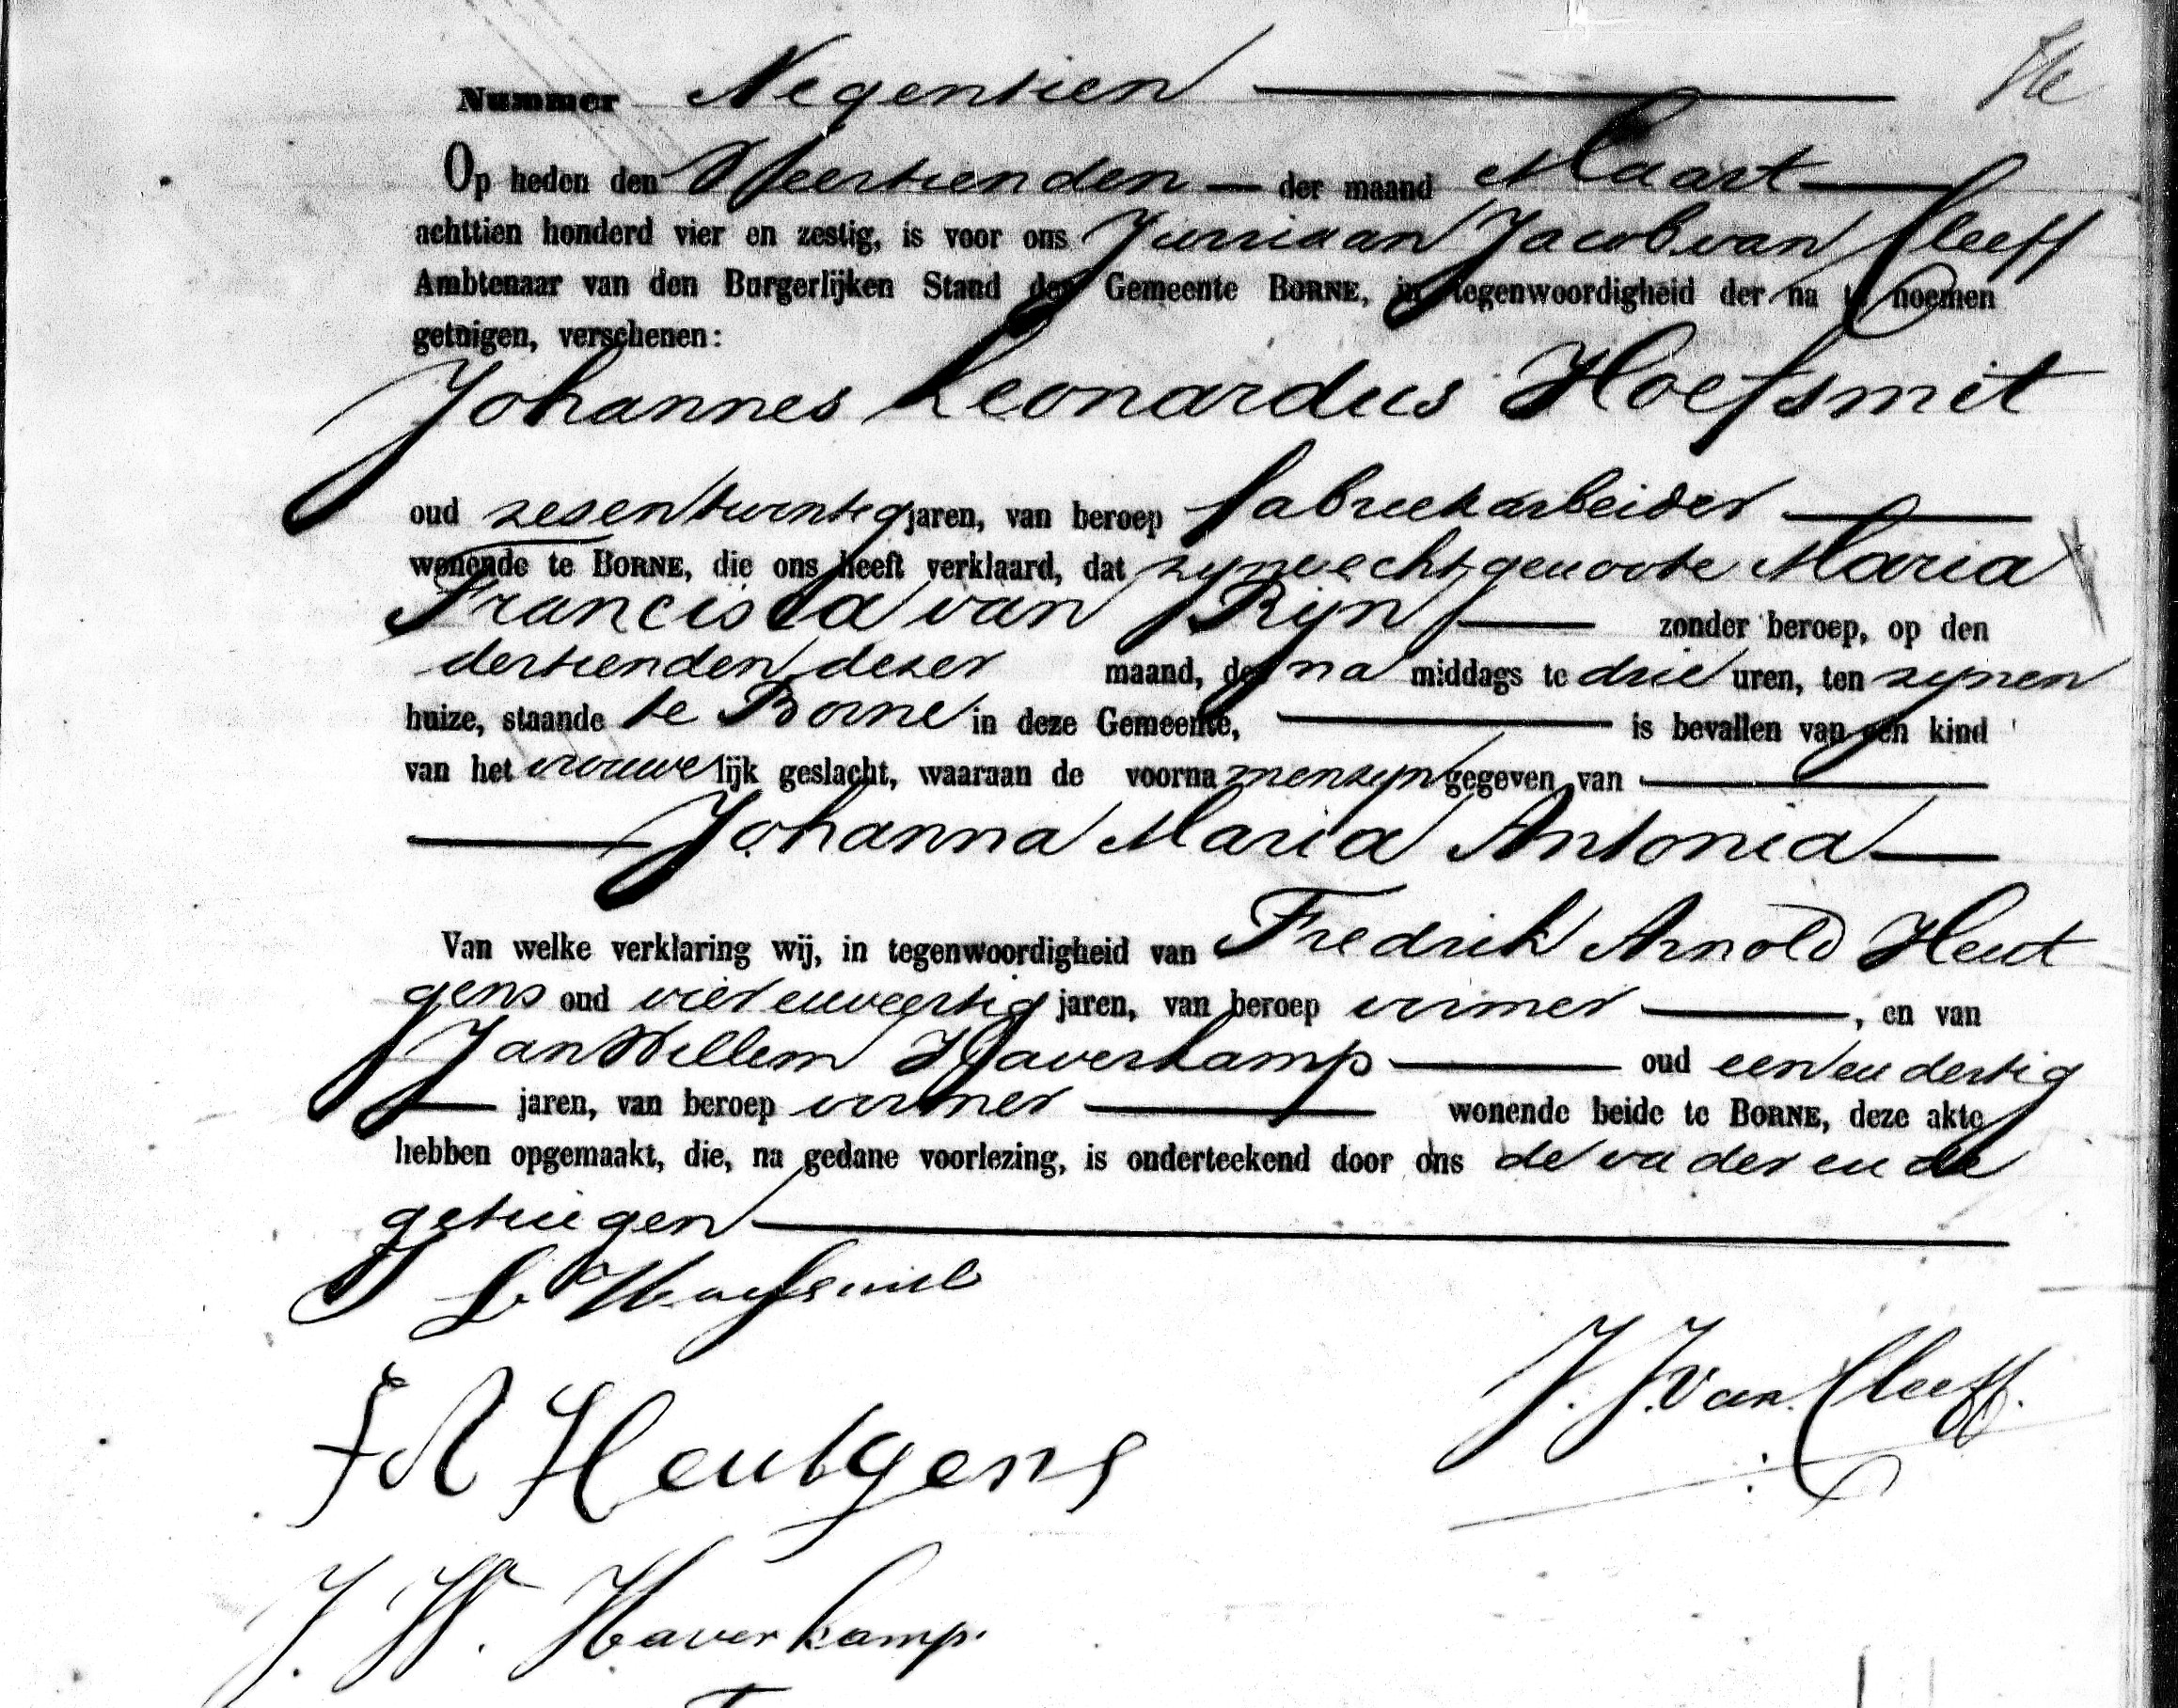 Nummer Negentien
Op heden den Veertienden der maand Maart
achttien honderd vier en zestig, is voor ons Jurriaan Jacob van Cleeff
Ambtenaar van den Burgerlijken Stand der Gemeente BORNE, in tegenwoordigheid der na te noemen
getuigen, verschenen:
Johannes Leonardus Hoefsmit
oud zesentwintig jaren, van beroep fabriekarbeider
wonende te BORNE, die ons heeft verklaard, dat zyne echtgenoote Maria
Francisca van Ryn zonder beroep, op den
dertienden dezer maand, des na middags te drie uren, ten zynen
huize, staande te Borne in deze Gemeente, is bevallen van een kind
van het vrouwelijk geslacht, waaraan de voornamen zyn gegeven van
Johanna Maria Antonia
Van welke verklaring wij, in tegenwoordigheid van Fredrik Arnold Heut
gens oud vier en veertig jaren, van beroep verwer, en van
Jan Willem Haverkamp oud een en dertig
jaren, van beroep verwer wonende beide te BORNE, deze akte
hebben opgemaakt, die, na gedane voorlezing, is onderteekend door ons de vader en de
getuigen
J L Hoefsmit
F A Heutgens
J. J. van Cleeff.
J. W. Haverkamp.